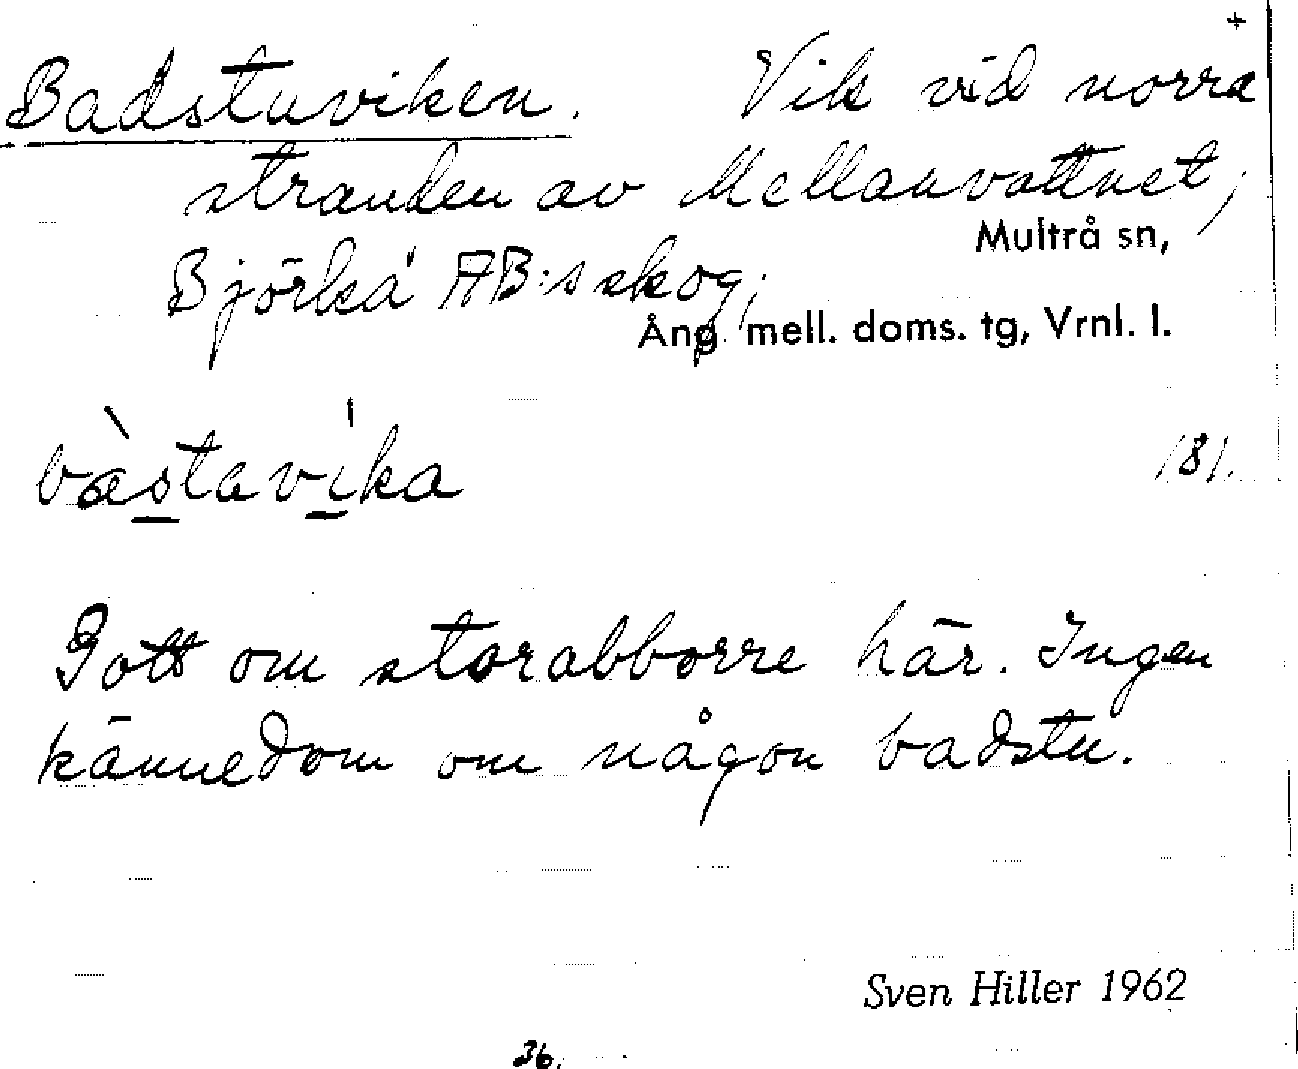 +
Badstuviken. Vik vid norra
stranden av Mellanvattnet,
Multrå sn,
Björkå AB:s skog,
Ång. mell. doms. tg, Vrnl. l.
bàstavi̍ka
181.
Gott om storabborre här. Ingen
kännedom om någon badstu.
Sven Hiller 1962
36.